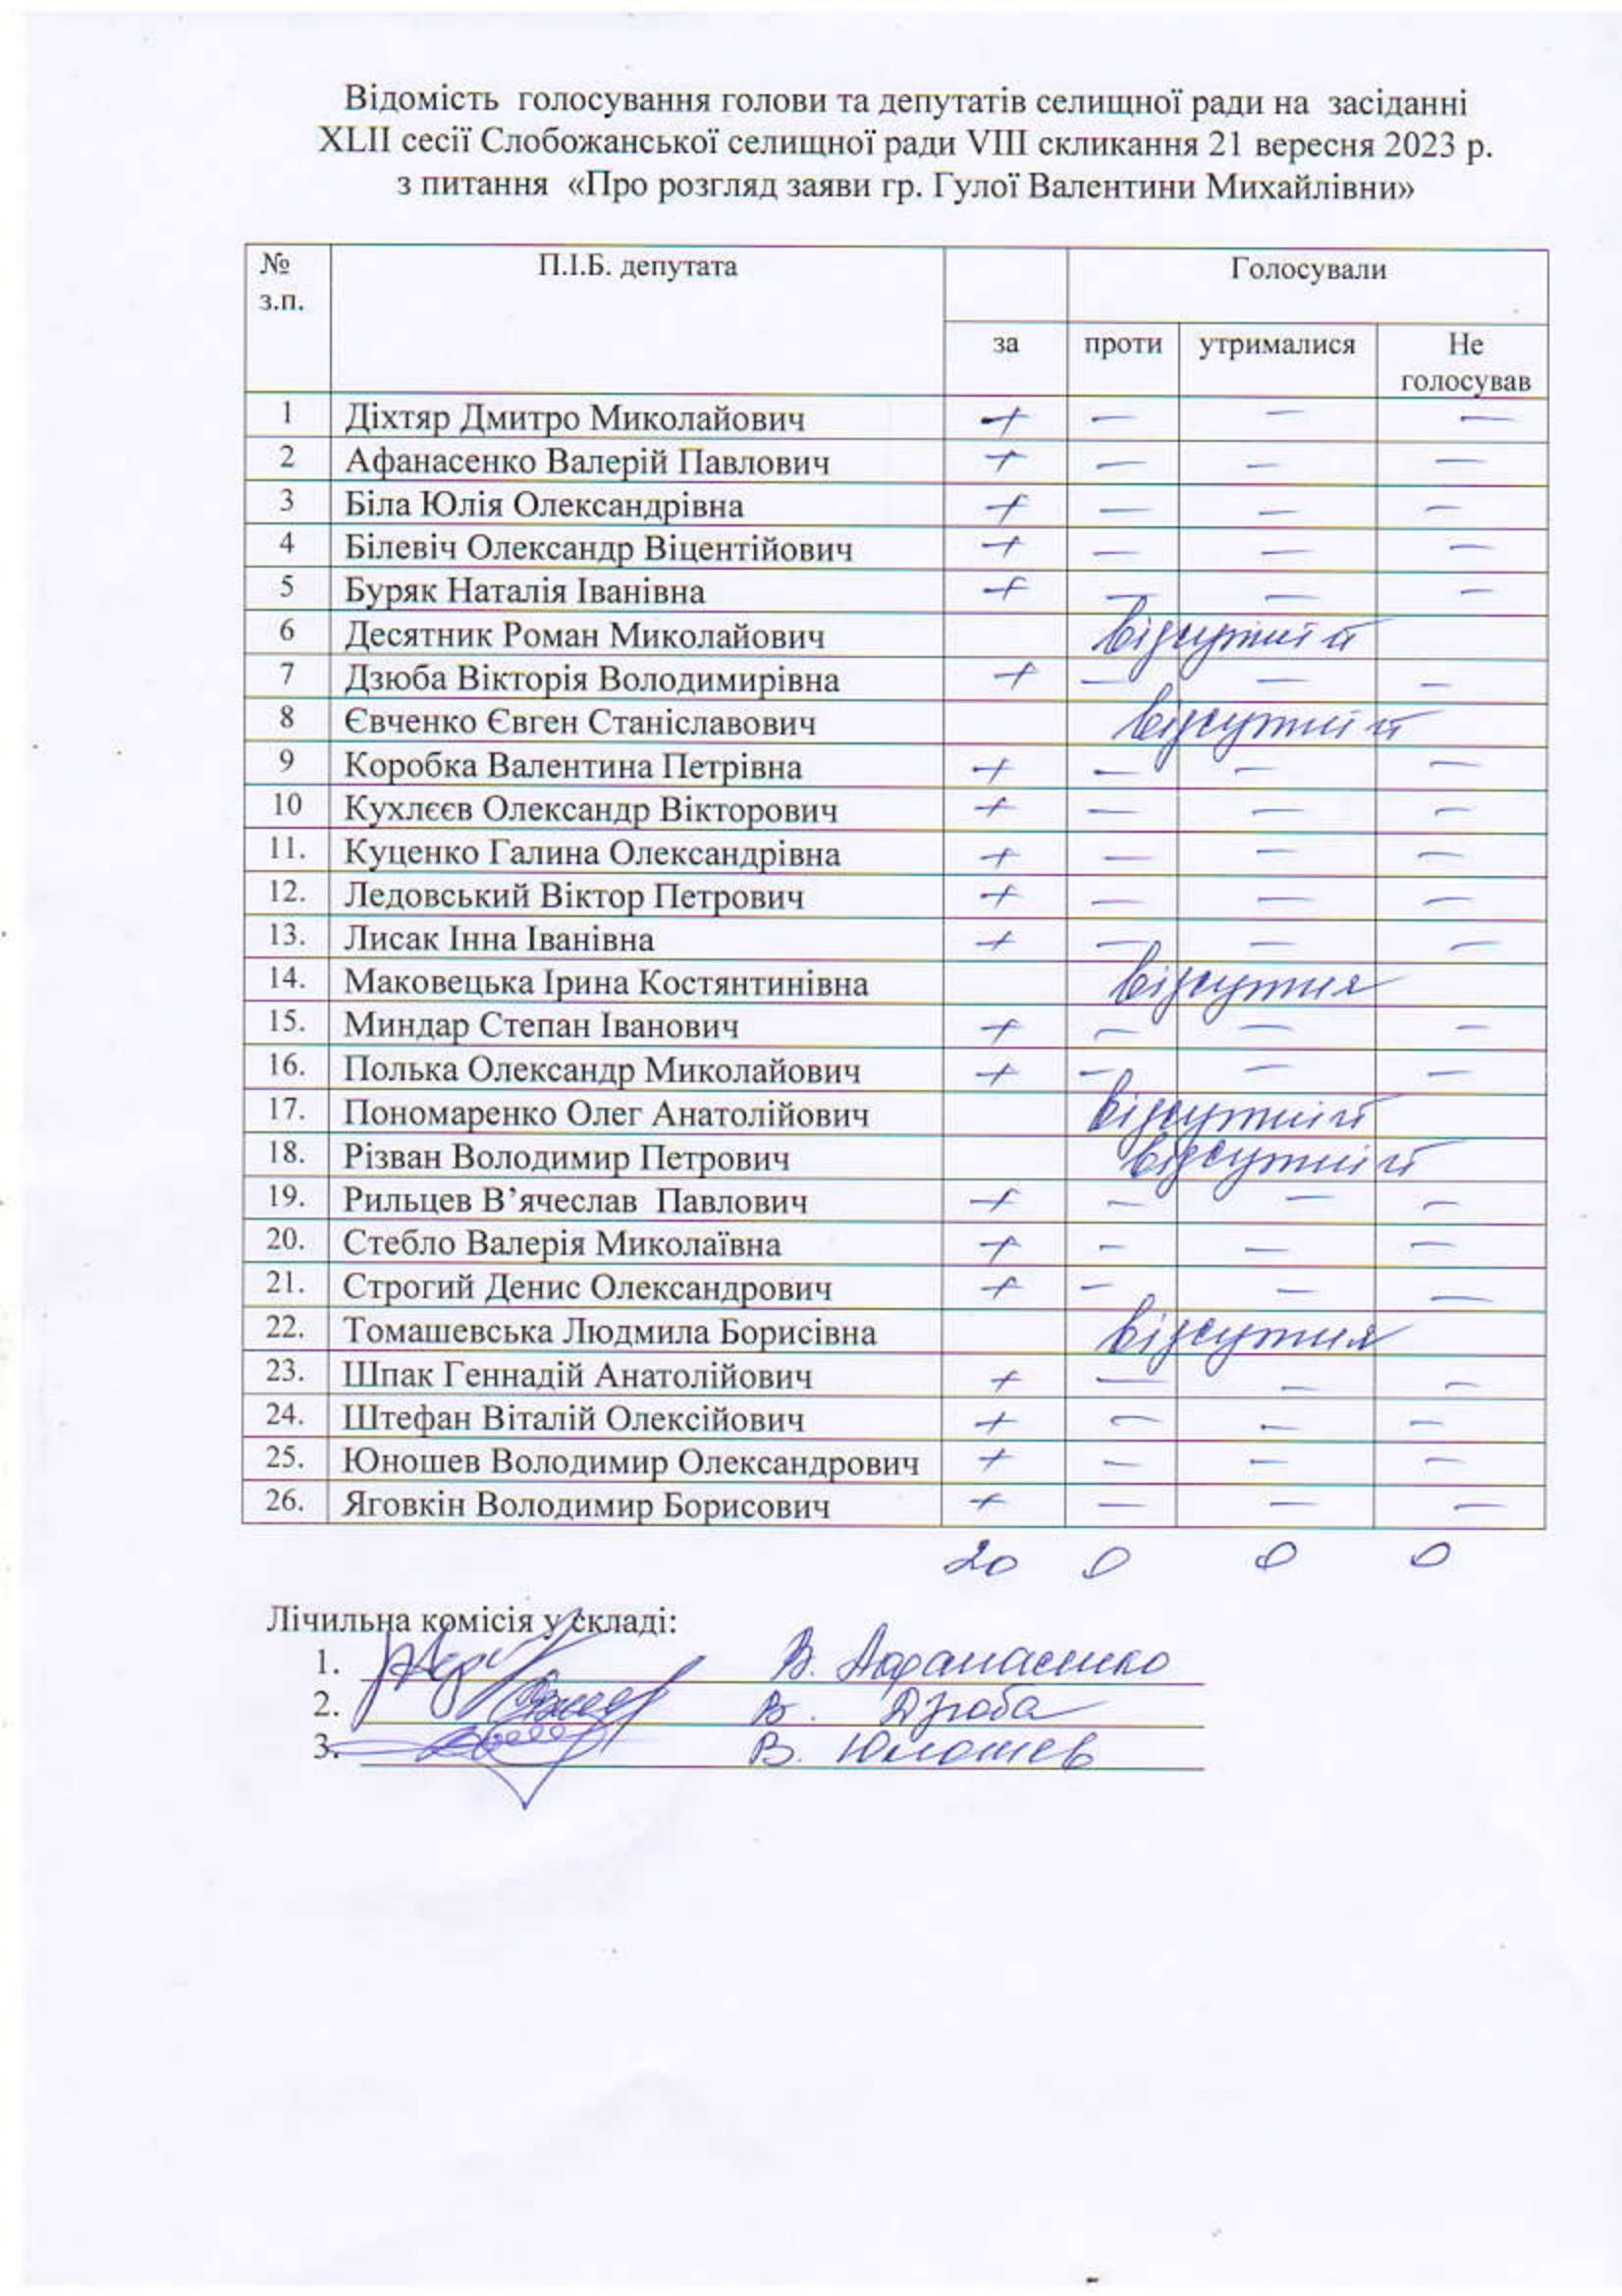 Відомість голосування голови та депутатів селищної ради на засіданні
XLII сесії Слобожанської селищної ради VIII скликання 21 вересня 2023 р.
з питання «Про розгляд заяви гр. Гулої Валентини Михайлівни»
№ з.п. П.І.Б. депутата Голосували
за проти утрималися Не голосував
1 Діхтяр Дмитро Миколайович + — — —
2 Афанасенко Валерій Павлович + — — —
3 Біла Юлія Олександрівна + — — —
4 Білевіч Олександр Віцентійович + — — —
5 Буряк Наталія Іванівна + — — —
6 Десятник Роман Миколайович відсутній
7 Дзюба Вікторія Володимирівна + — — —
8 Євченко Євген Станіславович відсутній
9 Коробка Валентина Петрівна + — — —
10 Кухлєєв Олександр Вікторович + — — —
11. Куценко Галина Олександрівна + — — —
12. Ледовський Віктор Петрович + — — —
13. Лисак Інна Іванівна + — — —
14. Маковецька Ірина Костянтинівна відсутня
15. Миндар Степан Іванович + — — —
16. Полька Олександр Миколайович + — — —
17. Пономаренко Олег Анатолійович відсутній
18. Різван Володимир Петрович відсутній
19. Рильцев В’ячеслав Павлович + — — —
20. Стебло Валерія Миколаївна + — — —
21. Строгий Денис Олександрович + — — —
22. Томашевська Людмила Борисівна відсутня
23. Шпак Геннадій Анатолійович + — — —
24. Штефан Віталій Олексійович + — — —
25. Юношев Володимир Олександрович + — — —
26. Яговкін Володимир Борисович + — — —
20 0 0 0
Лічильна комісія у складі:
1. В. Афанасенко
2. В. Дзюба
3. В. Юношев